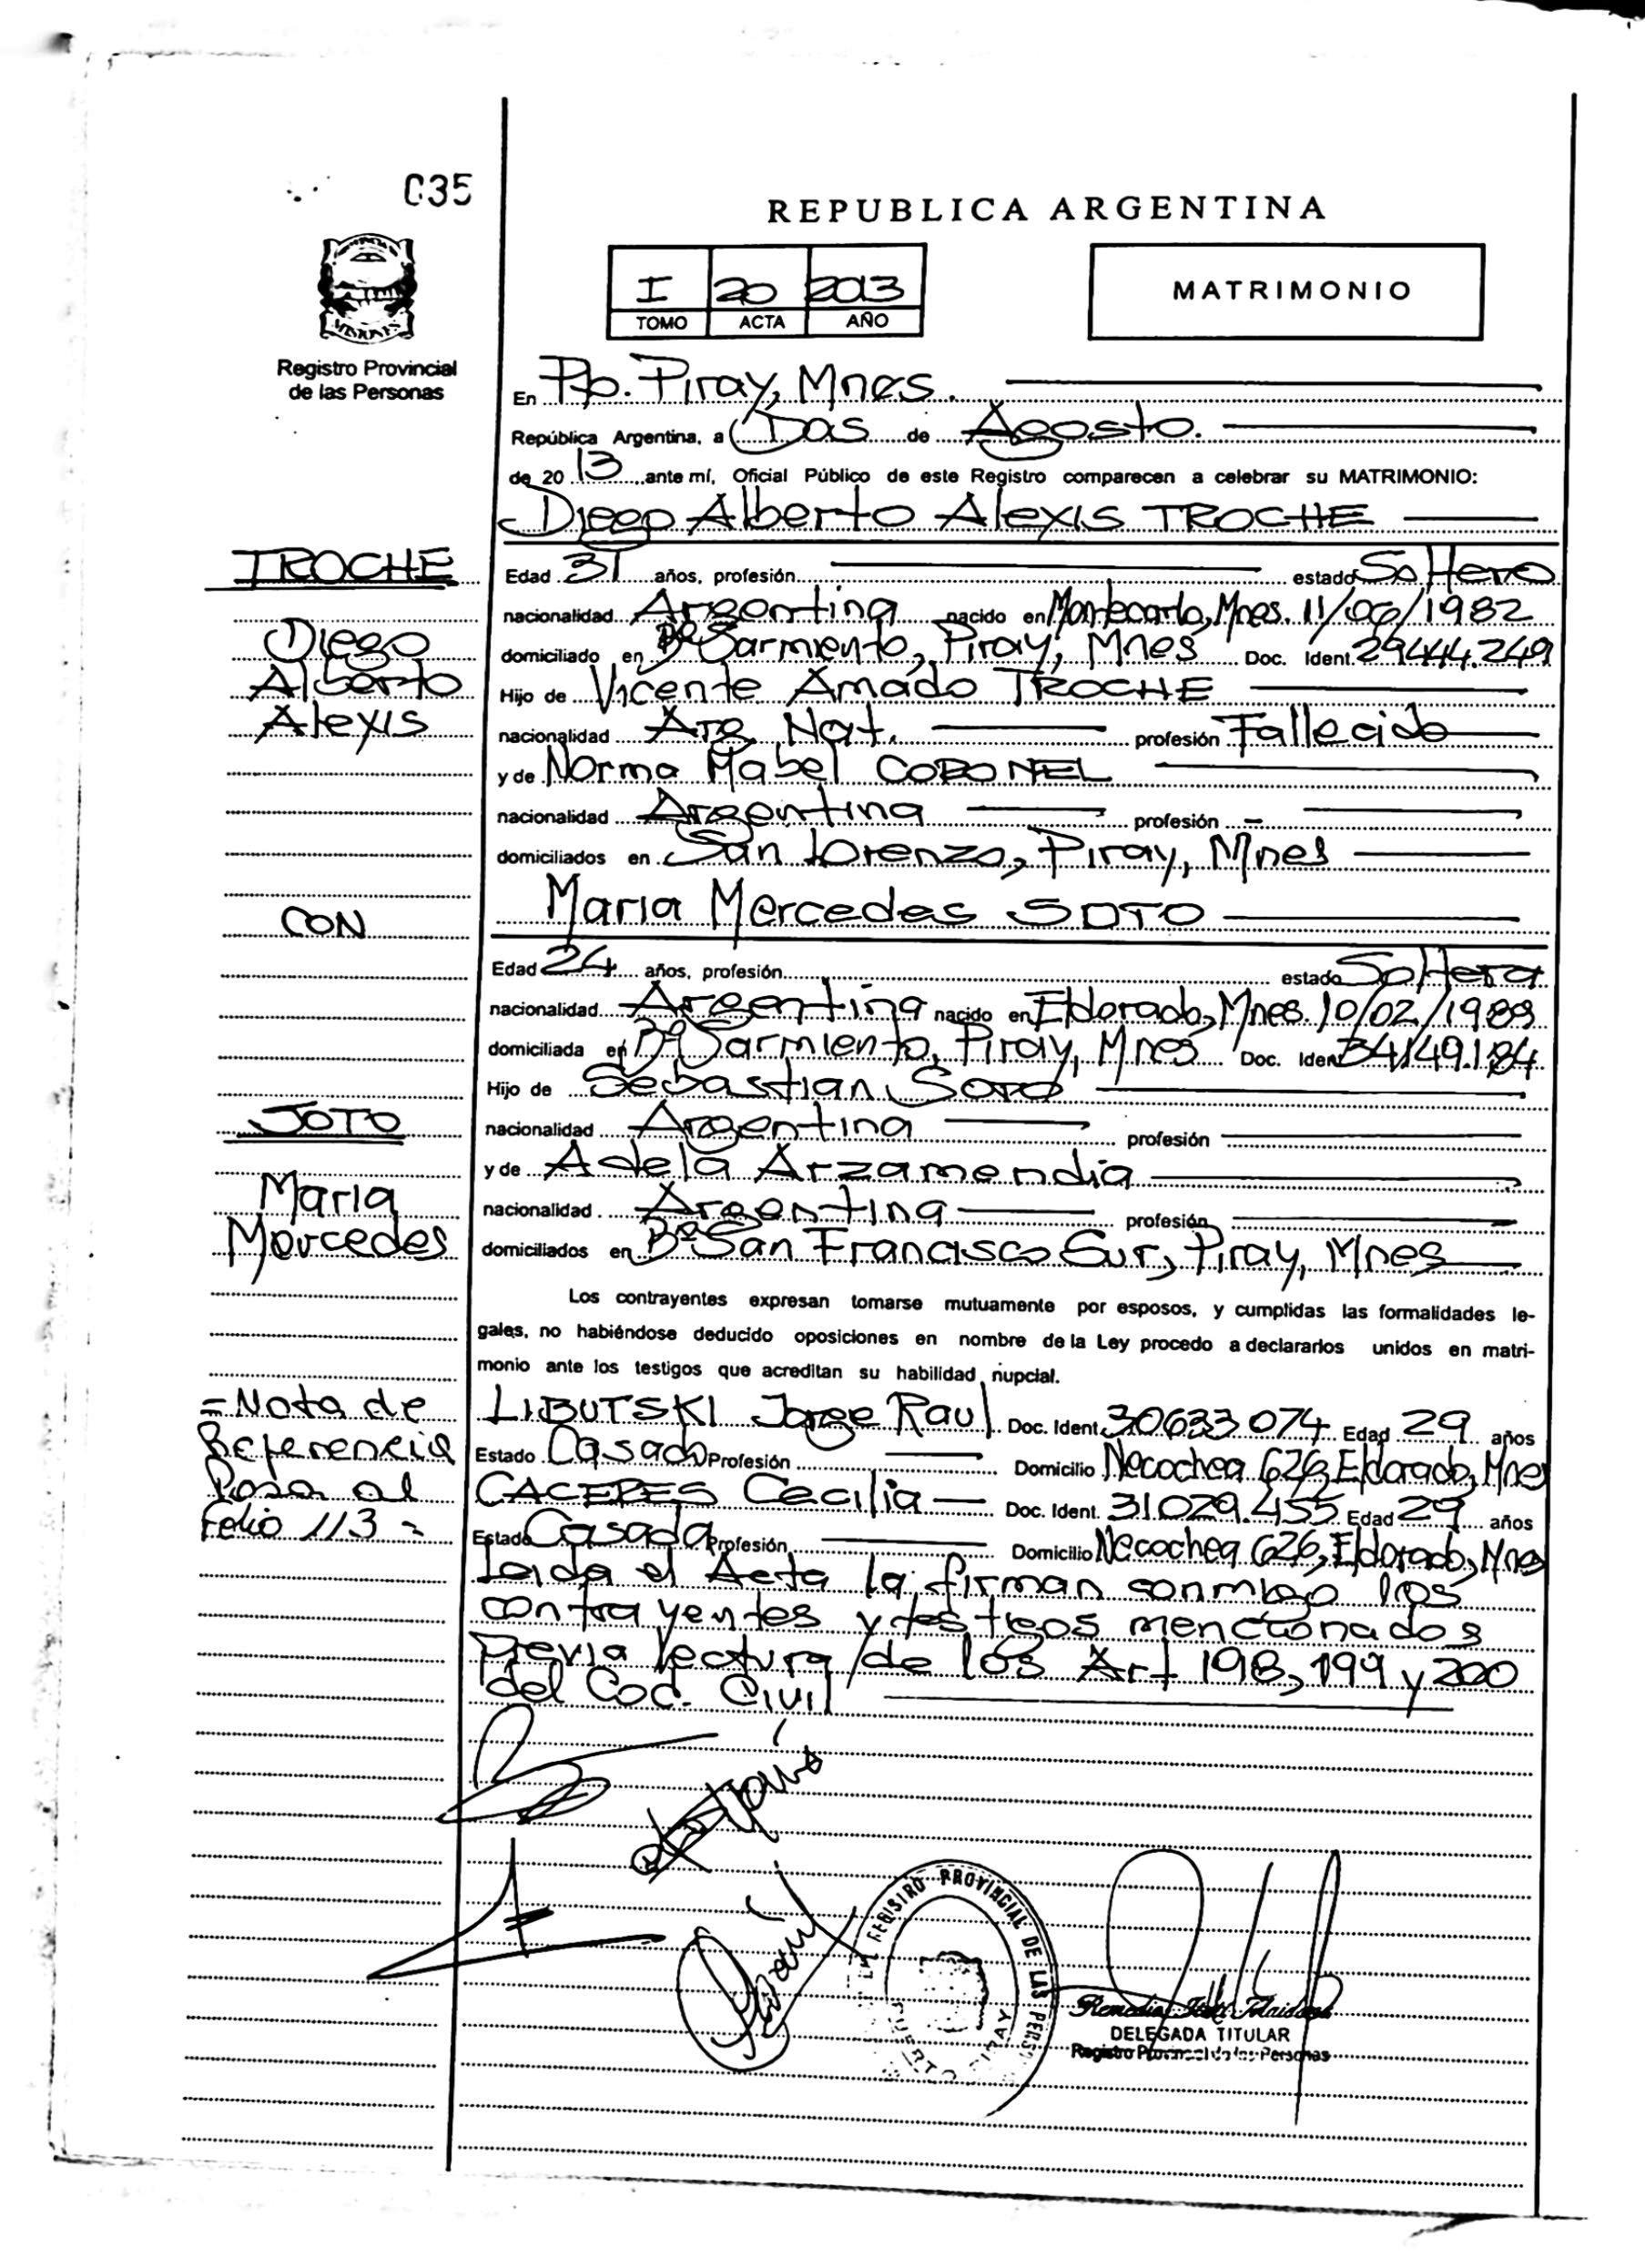 035
REPUBLICA ARGENTINA
I 20 2013
TOMO ACTA AÑO
MATRIMONIO
MISIONES
Registro Provincial
de las Personas
En Pto. Piray, Mnes.
República Argentina, a Dos de Agosto.
de 2013 ante mí, Oficial Público de este Registro comparecen a celebrar su MATRIMONIO:
Diego Alberto Alexis TROCHE
TROCHE
Diego
Alberto
Alexis
Edad 31 años, profesión estado Soltero
nacionalidad Argentina nacido en Montecarlo, Mnes. 11/06/1982
domiciliado en Bº Sarmiento, Piray, Mnes Doc. Ident. 29444.249
Hijo de Vicente Amado TROCHE
nacionalidad Arg. Nat. profesión Fallecido
y de Norma Mabel CORONEL
nacionalidad Argentina profesión —
domiciliados en San Lorenzo, Piray, Mnes
CON
Maria Mercedes SOTO
Edad 24 años, profesión estado Soltera
nacionalidad Argentina nacido en Eldorado, Mnes. 10/02/1989
domiciliada en Bº Sarmiento, Piray, Mnes Doc. Ident 34149.184
Hijo de Sebastian Soto
SOTO
Maria
Mercedes
nacionalidad Argentina profesión
y de Adela Arzamendia
nacionalidad Argentina profesión
domiciliados en Bº San Francisco Sur, Piray, Mnes
Los contrayentes expresan tomarse mutuamente por esposos, y cumplidas las formalidades le-
gales, no habiéndose deducido oposiciones en nombre de la Ley procedo a declararlos unidos en matri-
monio ante los testigos que acreditan su habilidad nupcial.
= Nota de
Referencia
Pasa al
Folio 113 =
LIBUTSKI Jorge Raul Doc. Ident 30633074 Edad 29 años
Estado Casado Profesión Domicilio Necochea 626, Eldorado, Mnes
CACERES Cecilia — Doc. Ident. 31.029.455 Edad 29 años
Estado Casada Profesión Domicilio Necochea 626, Eldorado, Mnes
Leida el Acta la firman conmigo los
contrayentes y testigos mencionados
Previa lectura de los Art 198, 199 y 200
del Cod. Civil
REGISTRO PROVINCIAL DE LAS PERS
PUERTO PIRAY
DELEGADA TITULAR
Registro Provincial de las Personas